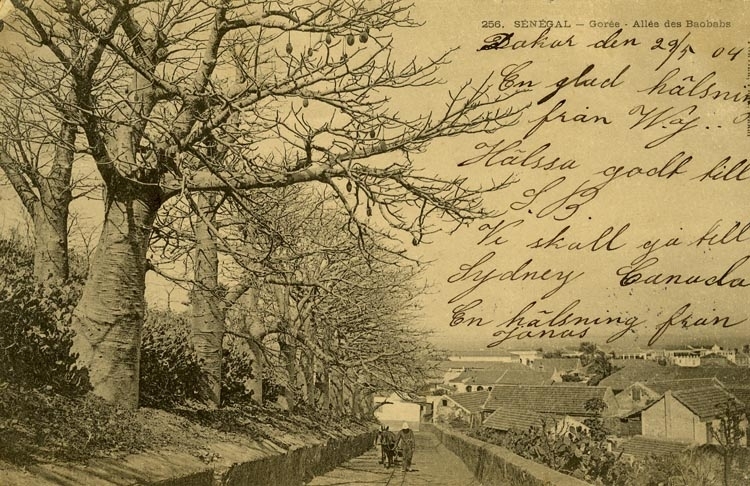 256. SÉNÉGAL — Gorée - Allée des Baobabs
Dakar den 29/5 04
En glad hälsning
från W.J..
Hälssa godt till
S.B.
Vi skall gå till
Sydney Canada
En hälsning från
Jonas